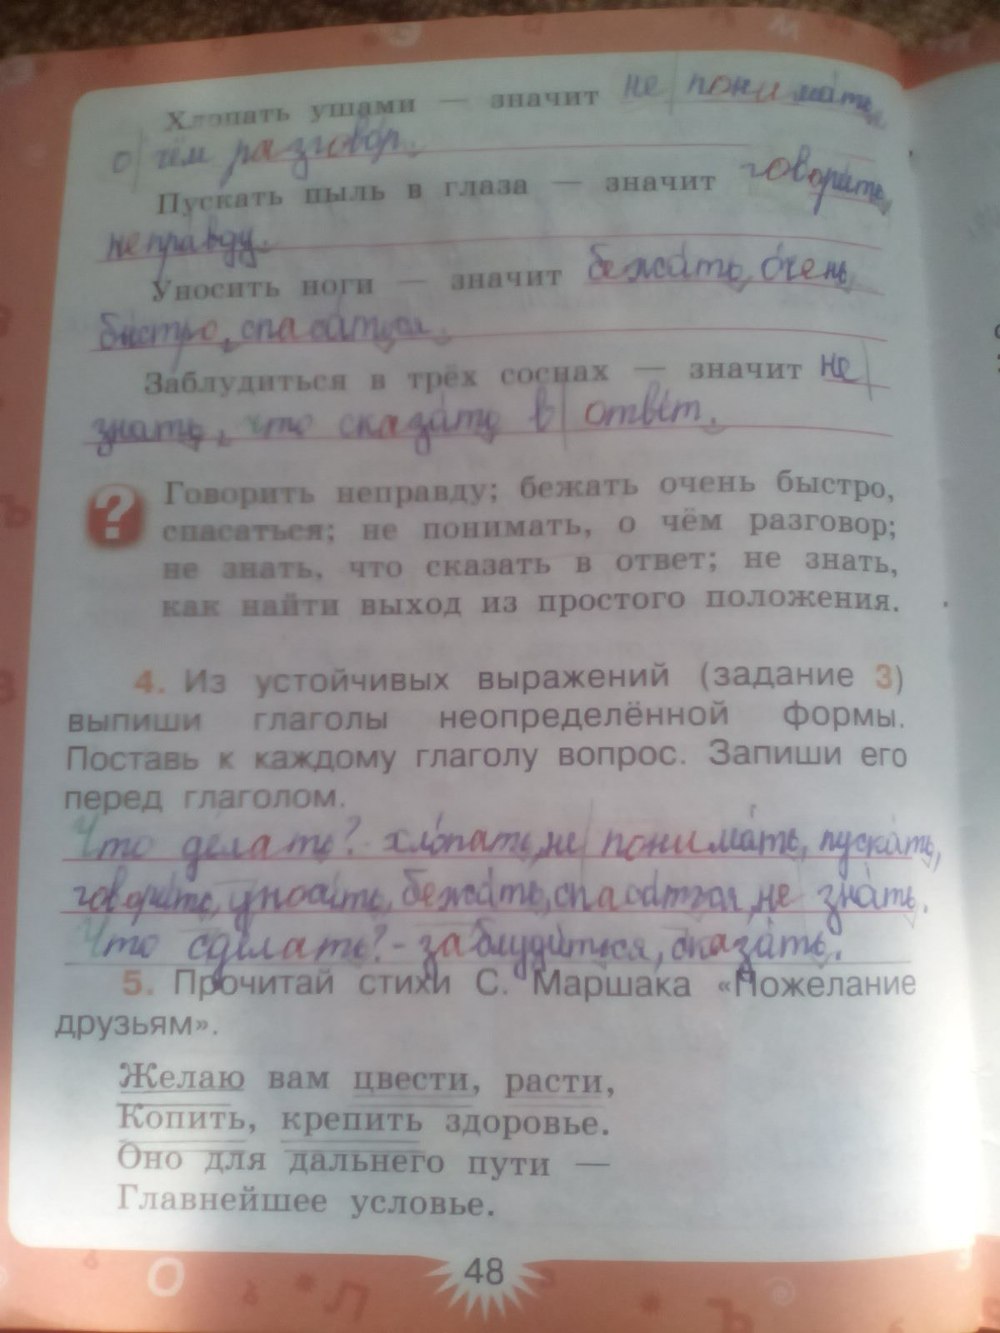 Хлопать ушами — значит не понимать,
о чём разговор.
Пускать пыль в глаза — значит говорить
неправду.
Уносить ноги — значит бежать очень
быстро, спасаться.
Заблудиться в трёх соснах — значит не
знать, что сказать в ответ.
? Говорить неправду; бежать очень быстро,
спасаться; не понимать, о чём разговор;
не знать, что сказать в ответ; не знать,
как найти выход из простого положения.
4. Из устойчивых выражений (задание 3)
выпиши глаголы неопределённой формы.
Поставь к каждому глаголу вопрос. Запиши его
перед глаголом.
Что делать? - хлопать, не понимать, пускать,
говорить, уносить, бежать, спасаться, не знать.
Что сделать? - заблудиться, сказать.
5. Прочитай стихи С. Маршака «Пожелание
друзьям».
Желаю вам цвести, расти,
Копить, крепить здоровье.
Оно для дальнего пути —
Главнейшее условье.
48